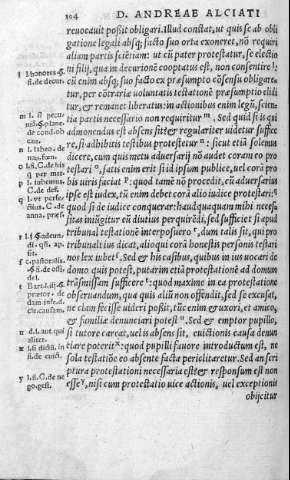 194 D. ANDREAE ALCIATI
reuocauit possit obligari. Illud constat, ut quis se ab obli
gatione legali absq; facto suo orta exoneret, nõ requiri
aliam partis scientiam: ut cũ pater protestatur, se electio
ni filij, qua in decurionẽ cooptatus est, non consentire l:
cũ enim absq; suo facto ex præsumpto cõsensu obligare-
tur, per cõtraria uoluntatis testationẽ præsumptio elidi
tur, & remanet liberatus: in actionibus enim legis, scien-
tia partis necessario non requiritur m. Sed quid si is qui
admonendus est absens sit & regulariter uidetur suffice
re, si adhibitis testibus protestetur n: sicut etiã solemus
dicere, cum quis metu aduersarij nõ audet coram eo pro
testari o, satis enim erit si id ipsum publice, uel corã pro
bis uiris faciat p: quod tamẽ nõ procedit, cũ aduersarius
ipse est iudex, tũ enim debet corã alio iudice protestari q
quod si de iudice conqueror: haudquaquam mihi neces-
sitas iniũgitur eũ diutius perquirẽdi, sed sufficiet si apud
tribunal testationẽ interposuero r, dum talis sit, qui pro
tribunali ius dicat, alioqui corã honestis personis testari
nos lex iubet s. Sed & his casibus, quibus in ius uocari de
domo quis potest, putarim etiã protestationẽ ad domum
trãsmissam sufficere t: quod maxime in ea protestatione
obseruandum, qua quis aliũ non offendit, sed se excusat,
ne clam fecisse uideri possit, tũc enim & uxori, & amico,
& familiæ denunciari potest u. Sed & emptor pupillo,
si tutore careat, uel is absens sit, euictionis causa denun
tiare poterit x: quod pupilli fauore introductum est, ne
sola testatiõe eo absente facta periclitaretur. Sed an scri
ptura protestationi necessaria est & responsum est non
esse y, nisi cum protestatio uice actionis, uel exceptionis
obijcitur
l l honores §
fi. de decur.
n l. labeo. de
nau. fœn.
o l. fi. C. de his
q per mar.
p l. tabernus
C. de def.
anno. præf
u d. l. aut qui
aliter.